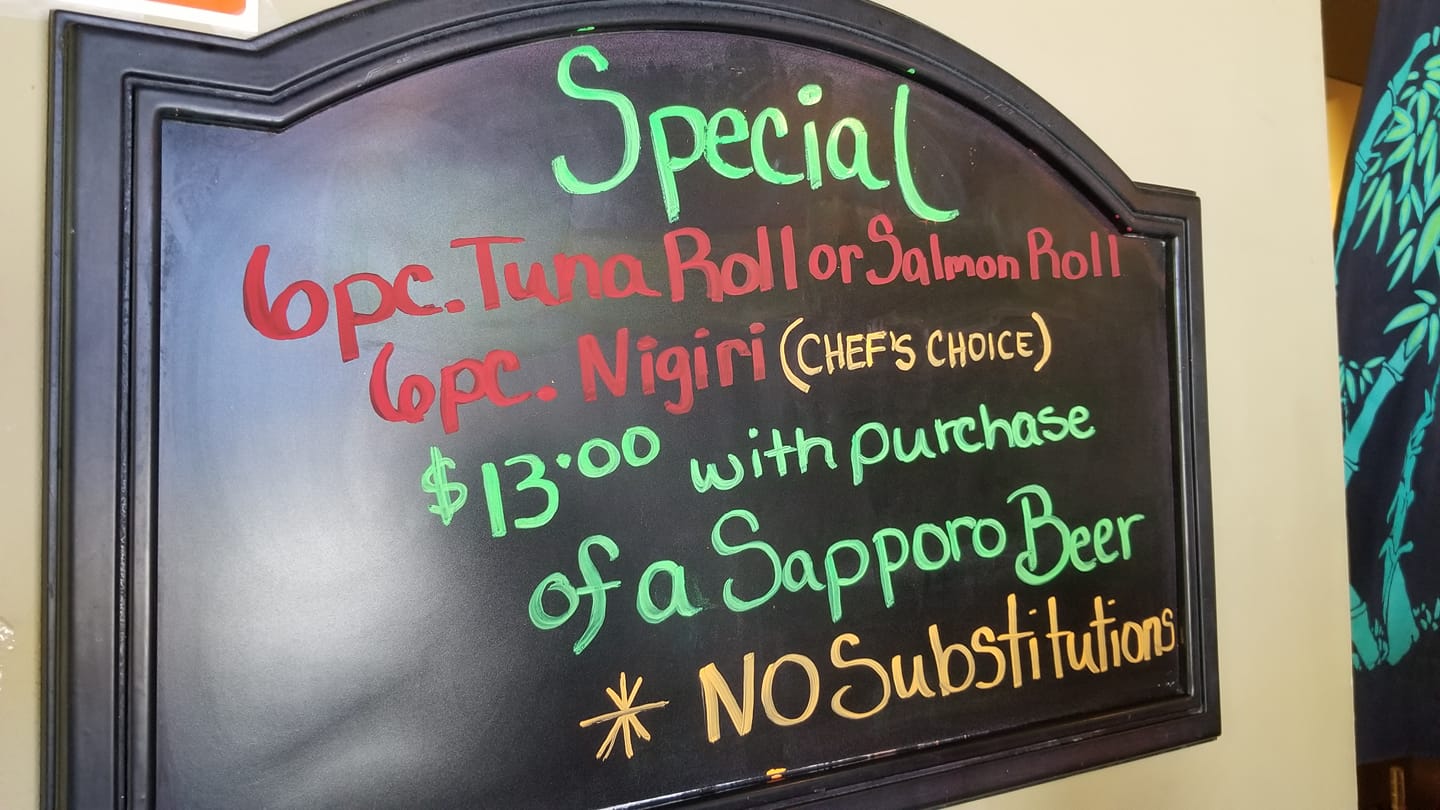 Special
6pc. Tuna Roll or Salmon Roll
6pc. Nigiri (CHEF'S CHOICE)
$13.00 with purchase
of a Sapporo Beer
* NO Substitutions